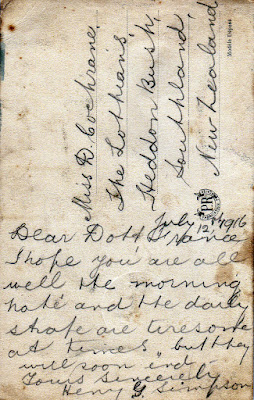 Miss D. Cochrane.
"The Lothians",
Heddon Bush,
Southland,
New Zealand
July 12th 1916
France
Dear Dott
I hope you are all
well the morning
hate and the daily
strafe are tiresome
at times but they
will soon end
Yours Sincerely
Henry G. Simpson